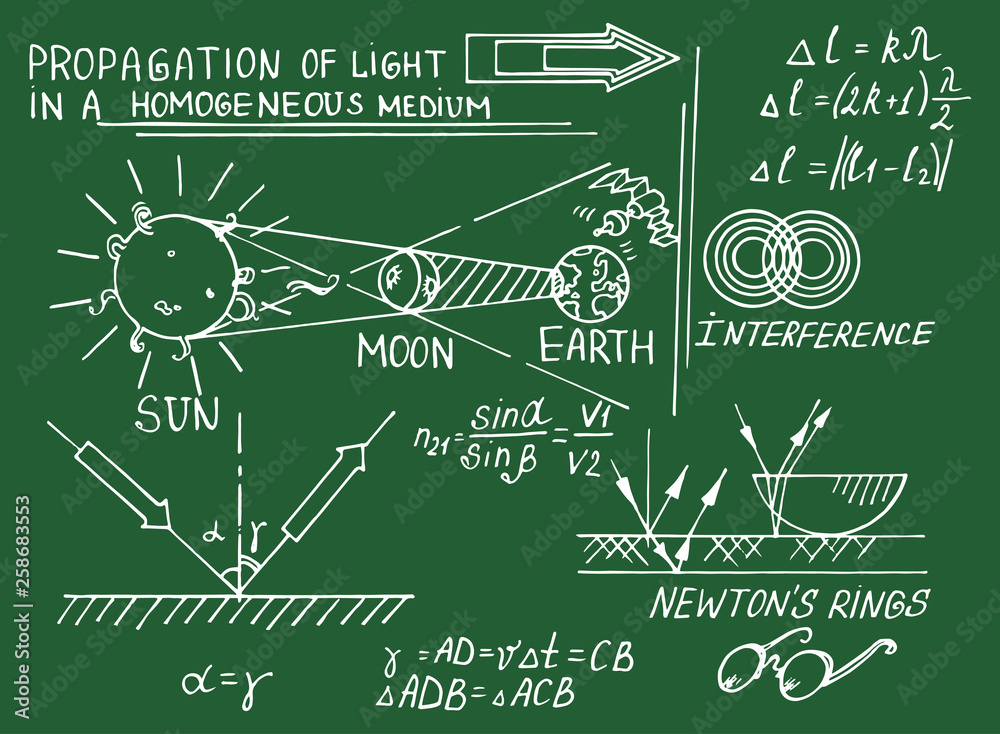 PROPAGATION OF LIGHT
IN A HOMOGENEOUS MEDIUM
Δl = kλ
Δl = (2k+1) λ/2
Δl = |(l1-l2)|
INTERFERENCE
SUN
MOON
EARTH
n21 = sinα/sinβ = V1/V2
α γ
NEWTON'S RINGS
α = γ
γ = AD = vΔt = CB
ΔADB = ΔACB
Adobe Stock | #258683553
Adobe Stock